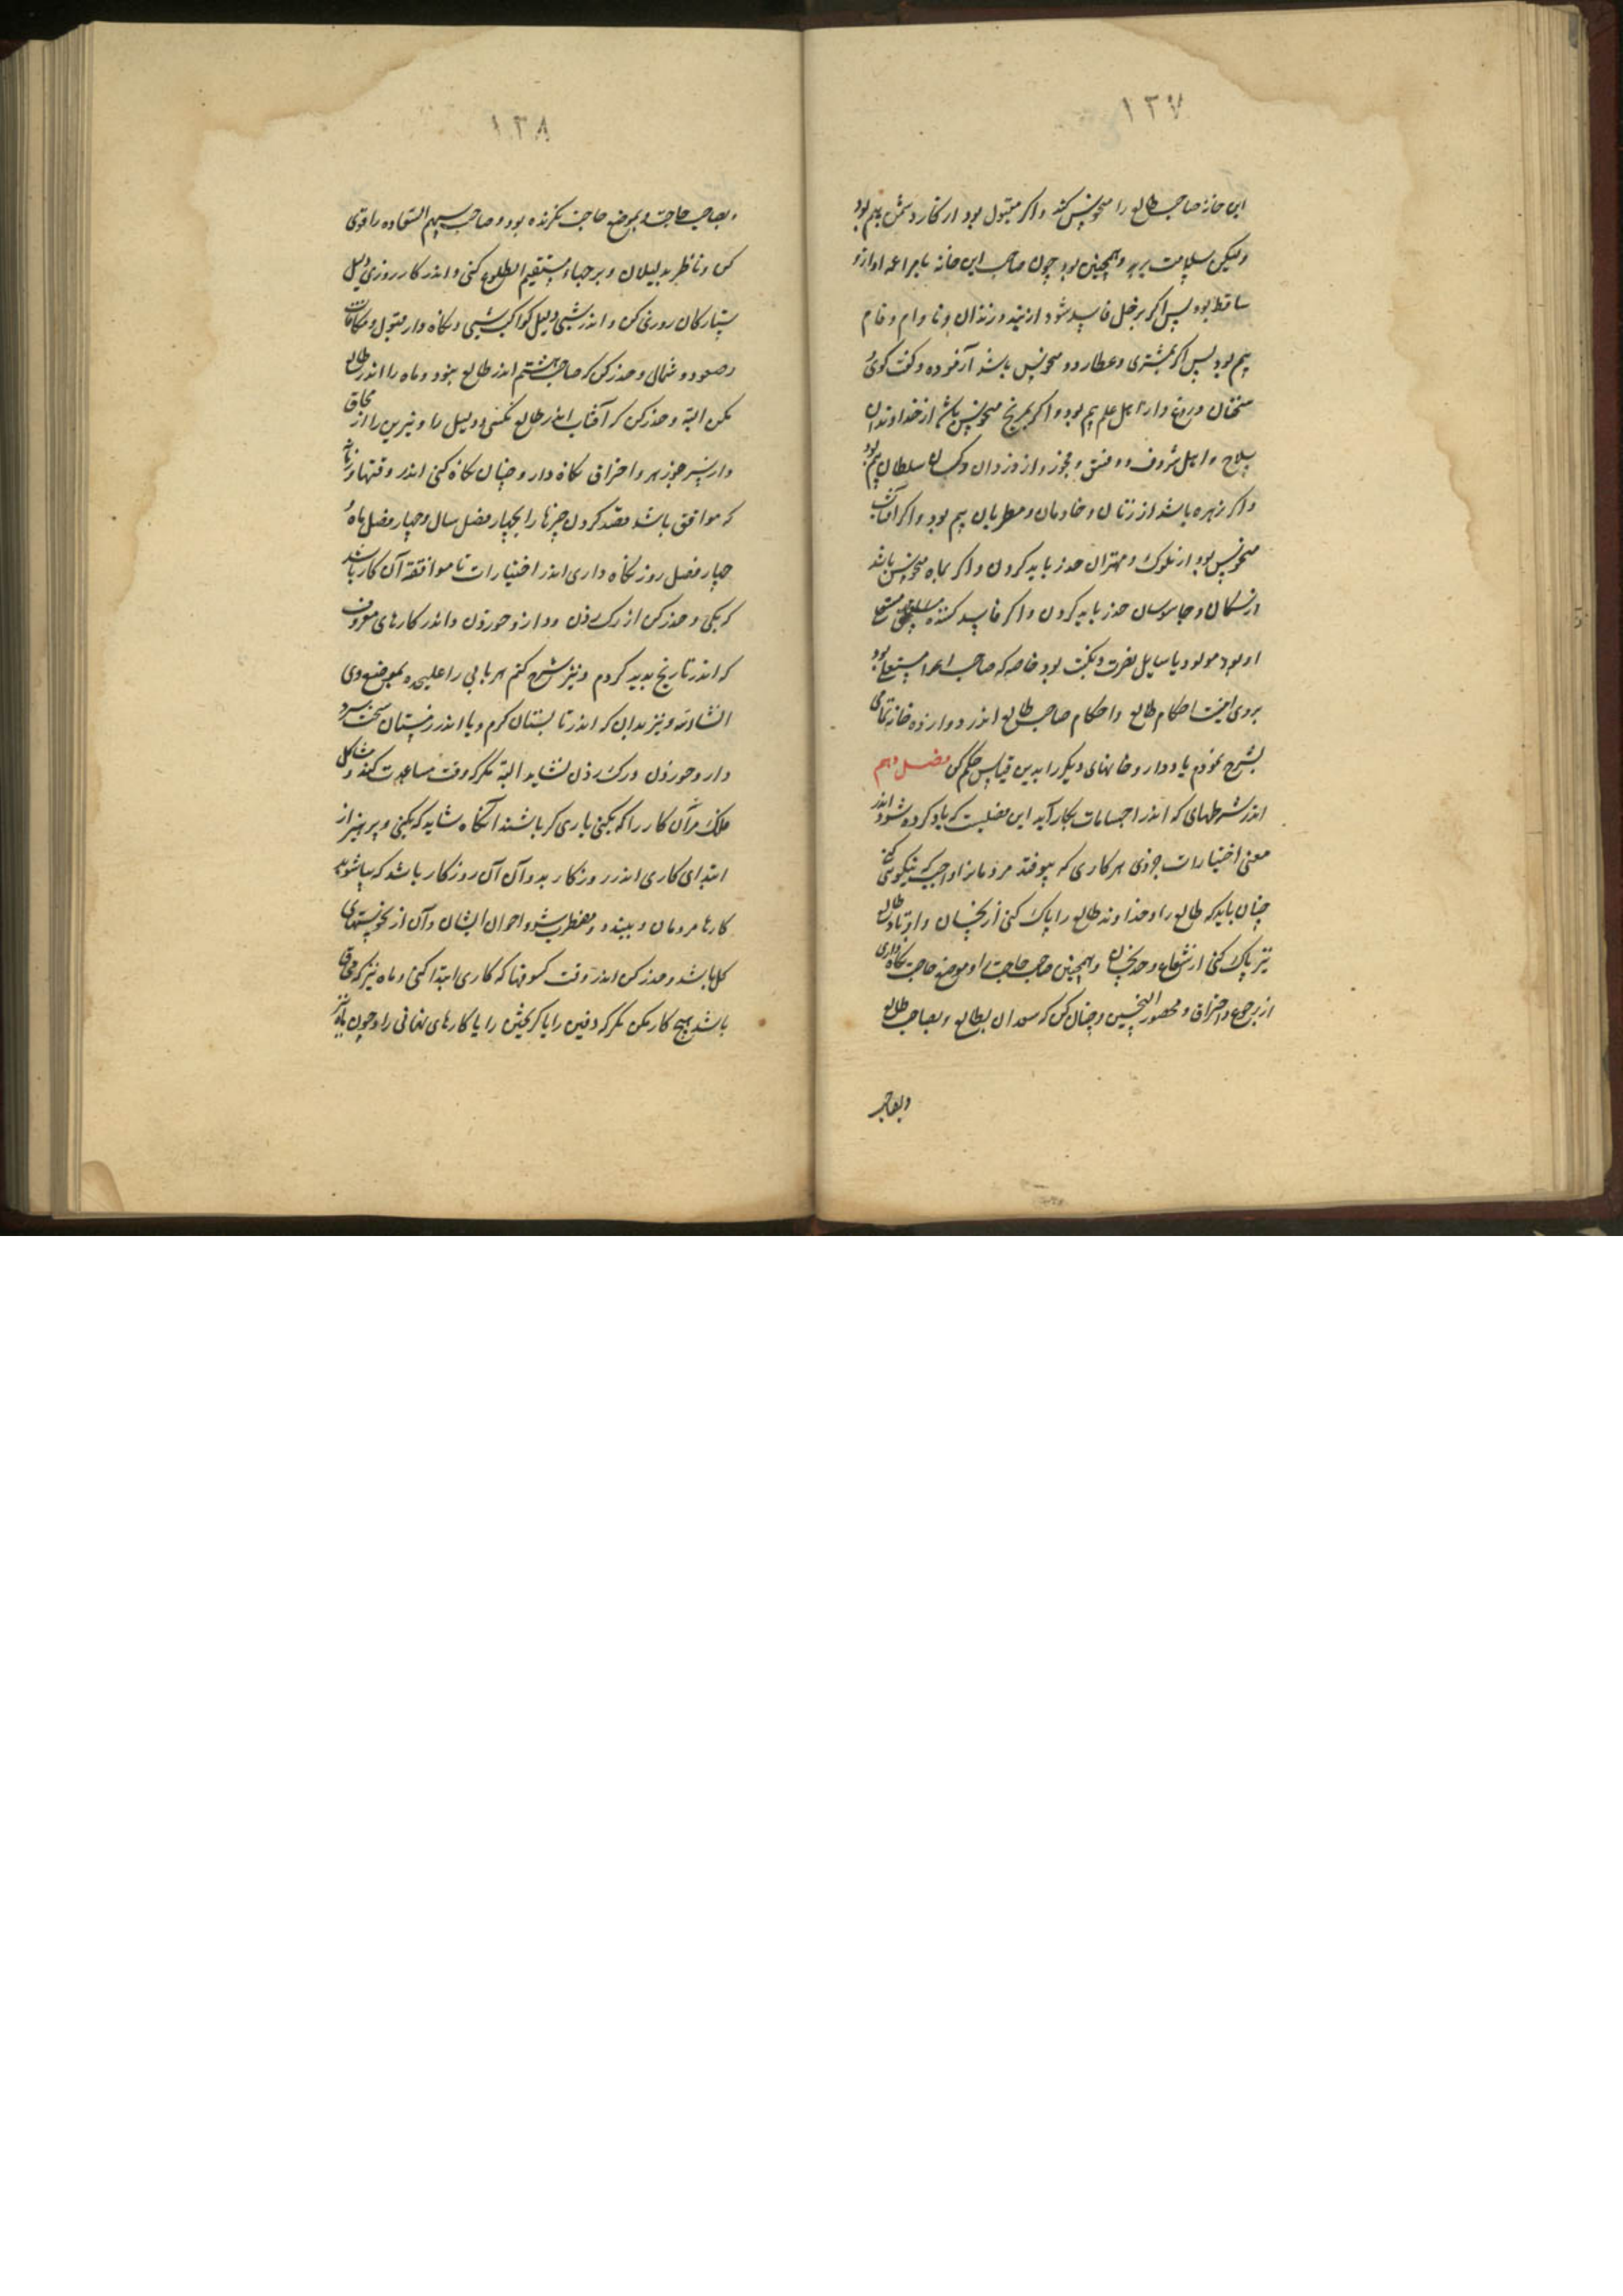 ۱۳۷
این خانه صاحب طالع را منحوس کند و اگر مقبول بود از کار دشمن بیم بود
ولیکن بسلامت برهد و همچنین بود چون صاحب این خانه با مراعمه او از و
ساقط بود پس اگر بزحل فاسد شود از بند و زندان و وام و فام
بیم بود پس اگر بمشتری و عطارد و منحوس باشد و گفت کوی
سخنان دروغ و از اهل علم بیم بود و اگر بمریخ منحوس باشد از خداوندان
سلاح و اهل و فسق و فجور و از دزدان و کسان سلطان بیم بود
و اگر بزهره باشد از زنان و خادمان و مطربان بیم بود و اگر آفتاب
منحوس بود از ملوک و مهتران حذر باید کردن و اگر بماه منحوس باشد
از و جاسوسان حذر باید کردن و اگر فاسد کننده
او بود مولود یا سایل نصرت و نکبت بود خاصه که صاحب مستعلی بود
بروی اینست احکام طالع و احکام صاحب طالع اندر دوازده خانه بتمامی
بشرح نمودم یاد دار و خانهای دیگر را بدین قیاس حکم کن فصل دهم
اندر شرطهای که اندر بکار آید این فصلیست که یاد کرده شود اندر
معنی اختیارات جزوی هر کاری که بیوفتد مردمانرا و اجب که نیکو کنی
چنان باید که طالع را و خداوند طالع را پاک کنی از نحسان و اوتاد طالع
نیز پاک کنی از شعاع و حد نحسان و همچنین صاحب حاجت او موضع حاجت نگاه داری
از رجوع و احتراق و محصور النحسین و چنان کن که سعدان بطالع و بصاحب طالع
و بصاحب
۱۳۸
و بصاحب حاجت و بموضع حاجت نگرنده بود و صاحب سهم السعاده را قوی
کن و ناظر بدلیلان و برجهاء مستقیم الطلوع کنی و اندر کار روزی دلیل
ستارگان روزی کن و اندر شبی دلیل کواکب شبی و نگاه دار قبول و مکافات
و صعود و شمالی و حذر کن که صاحب هشتم اندر طالع نبود و ماه را اندر طالع
مکن البته و حذر کن که آفتاب اندر طالع نکنی و دلیل را و نیرین را از محاق
دار نیز جوزهر و احتراق نگاه دار و چنان نگاه کنی اندر وقتها و زمانه
که موافق باشد قصد کردن چیزها را بچهار فصل سال و چهار فصل ماه و
چهار فصل روز نگاه داری اندر اختیارات تا موافقه آن کار باشد
که بکنی و حذر کن از رک زدن و دارو خوردن و اندر کارهای معروف
که اندر تاریخ پدید کردم و نیز شرح کنم هر بابی را علیحده بموضع وی
انشاالله و نیز بدان که اندر تابستان کرم و یا اندر زمستان سخت سرد
دارو خوردن و رک زدن نشاید البته مگر که وقت مساعدت کند و مشاکل
فلک مر آن کار را که بکنی یاری گر باشند آنگاه شاید که بکنی و پرهیز از
ابتدای کاری اندر روزگار بد و آن آن روزگار باشد که بیاشوبد
کارها مردمان و ببینده و مضطرب شود احوال ایشان و آن از نحوستهای
کل باشد و حذر کن اندر وقت کسوفها که کاری ابتدا کنی و ماه نیز که بمحاق
باشد هیچ کار مکن مگر که دفین را یا گریختن را یا کارهای نهانی را و چون